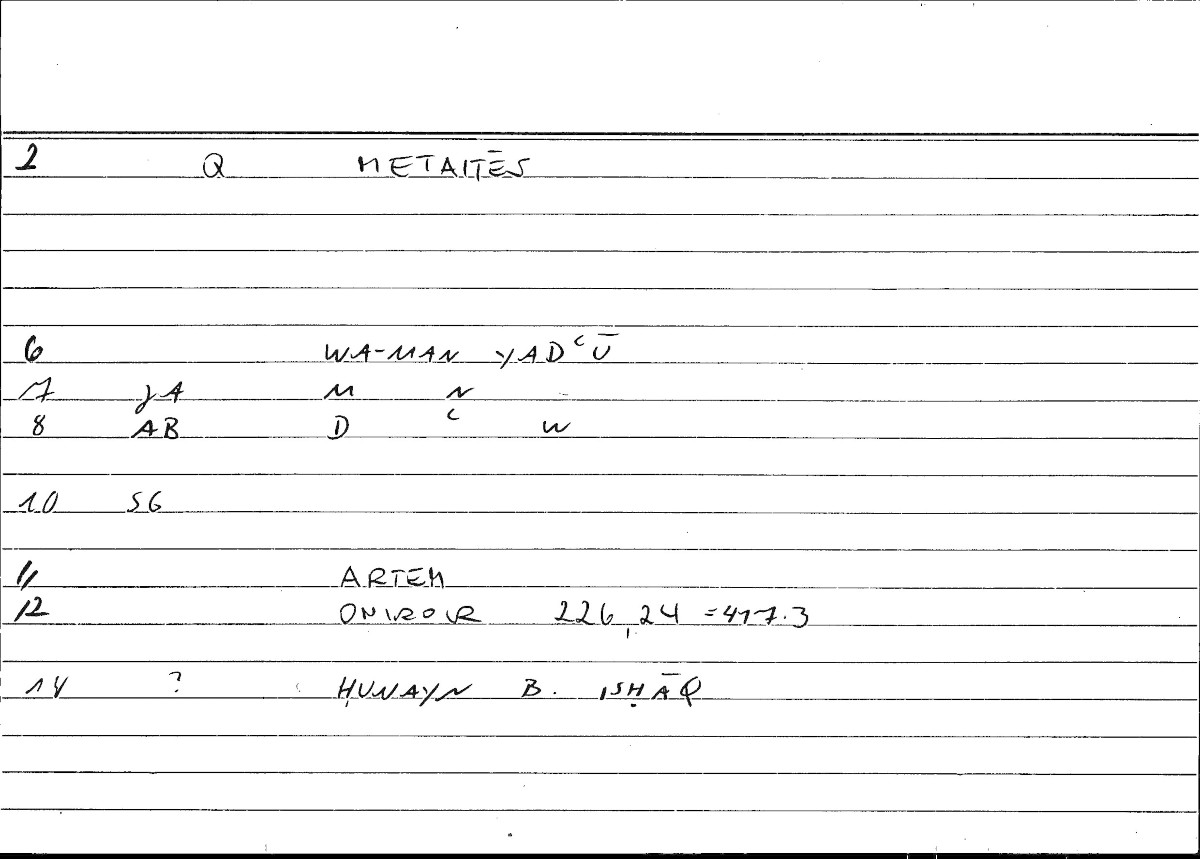 2 Q METAITĒS
6 WA-MAN YADʿŪ
7 JA M N
8 AB D ʿ W
10 SG
11 ARTEM
12 ONIROCR 226,24 =417.3
14 ? ḤUNAYN B. ISḤĀQ